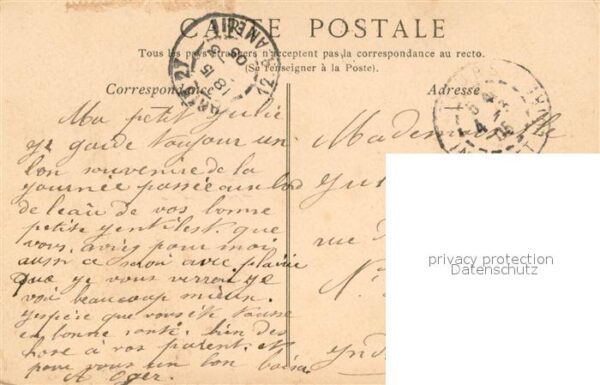 CARTE POSTALE
Tous les pays étrangers n'acceptent pas la correspondance au recto.
(Se renseigner à la Poste).
Correspondance
Adresse
Ma petit Julie
je garde toujour un
bon souvenir de la
journée passée au bord
de l'eau de vos bonne
petite gentilest que
vous aviés pour moi
aussi ce sera avec plaisir
que je vous verrai je
voi beaucoup mieux.
J'espère que vous ete tousse
en bonne santé. bien des
chose à vos parent et
pour vous un bon baisé
A Oger.
Mademoiselle
Ju
rue
N°
privacy protection
Datenschutz